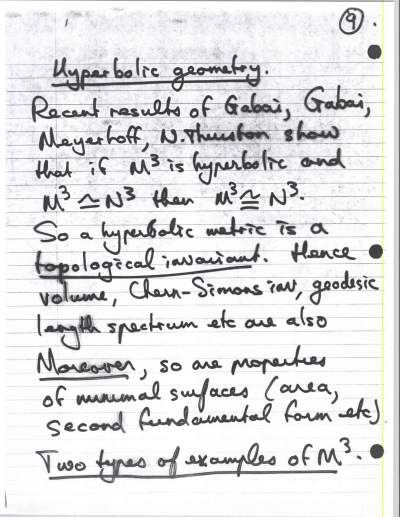 9.
Hyperbolic geometry.
Recent results of Gabai, Gabai,
Meyerhoff, N.Thurston show
that if M³ is hyperbolic and
M³ ≃ N³ then M³ ≅ N³.
So a hyperbolic metric is a
topological invariant. Hence
volume, Chern-Simons inv, geodesic
length spectrum etc are also
Moreover, so are properties
of minimal surfaces (area,
second fundamental form etc)
Two types of examples of M³.